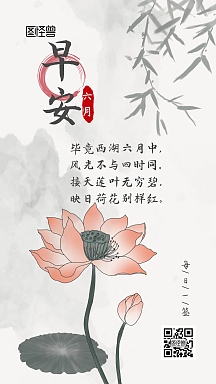 图怪兽
早安
六月
毕竟西湖六月中,
风光不与四时同,
接天莲叶无穷碧,
映日荷花别样红,
每/日/一/签